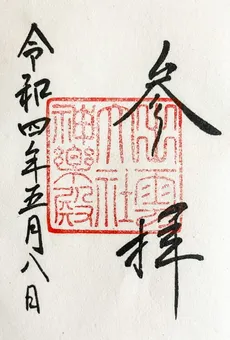 参拝
出雲大社神楽殿
令和四年五月八日